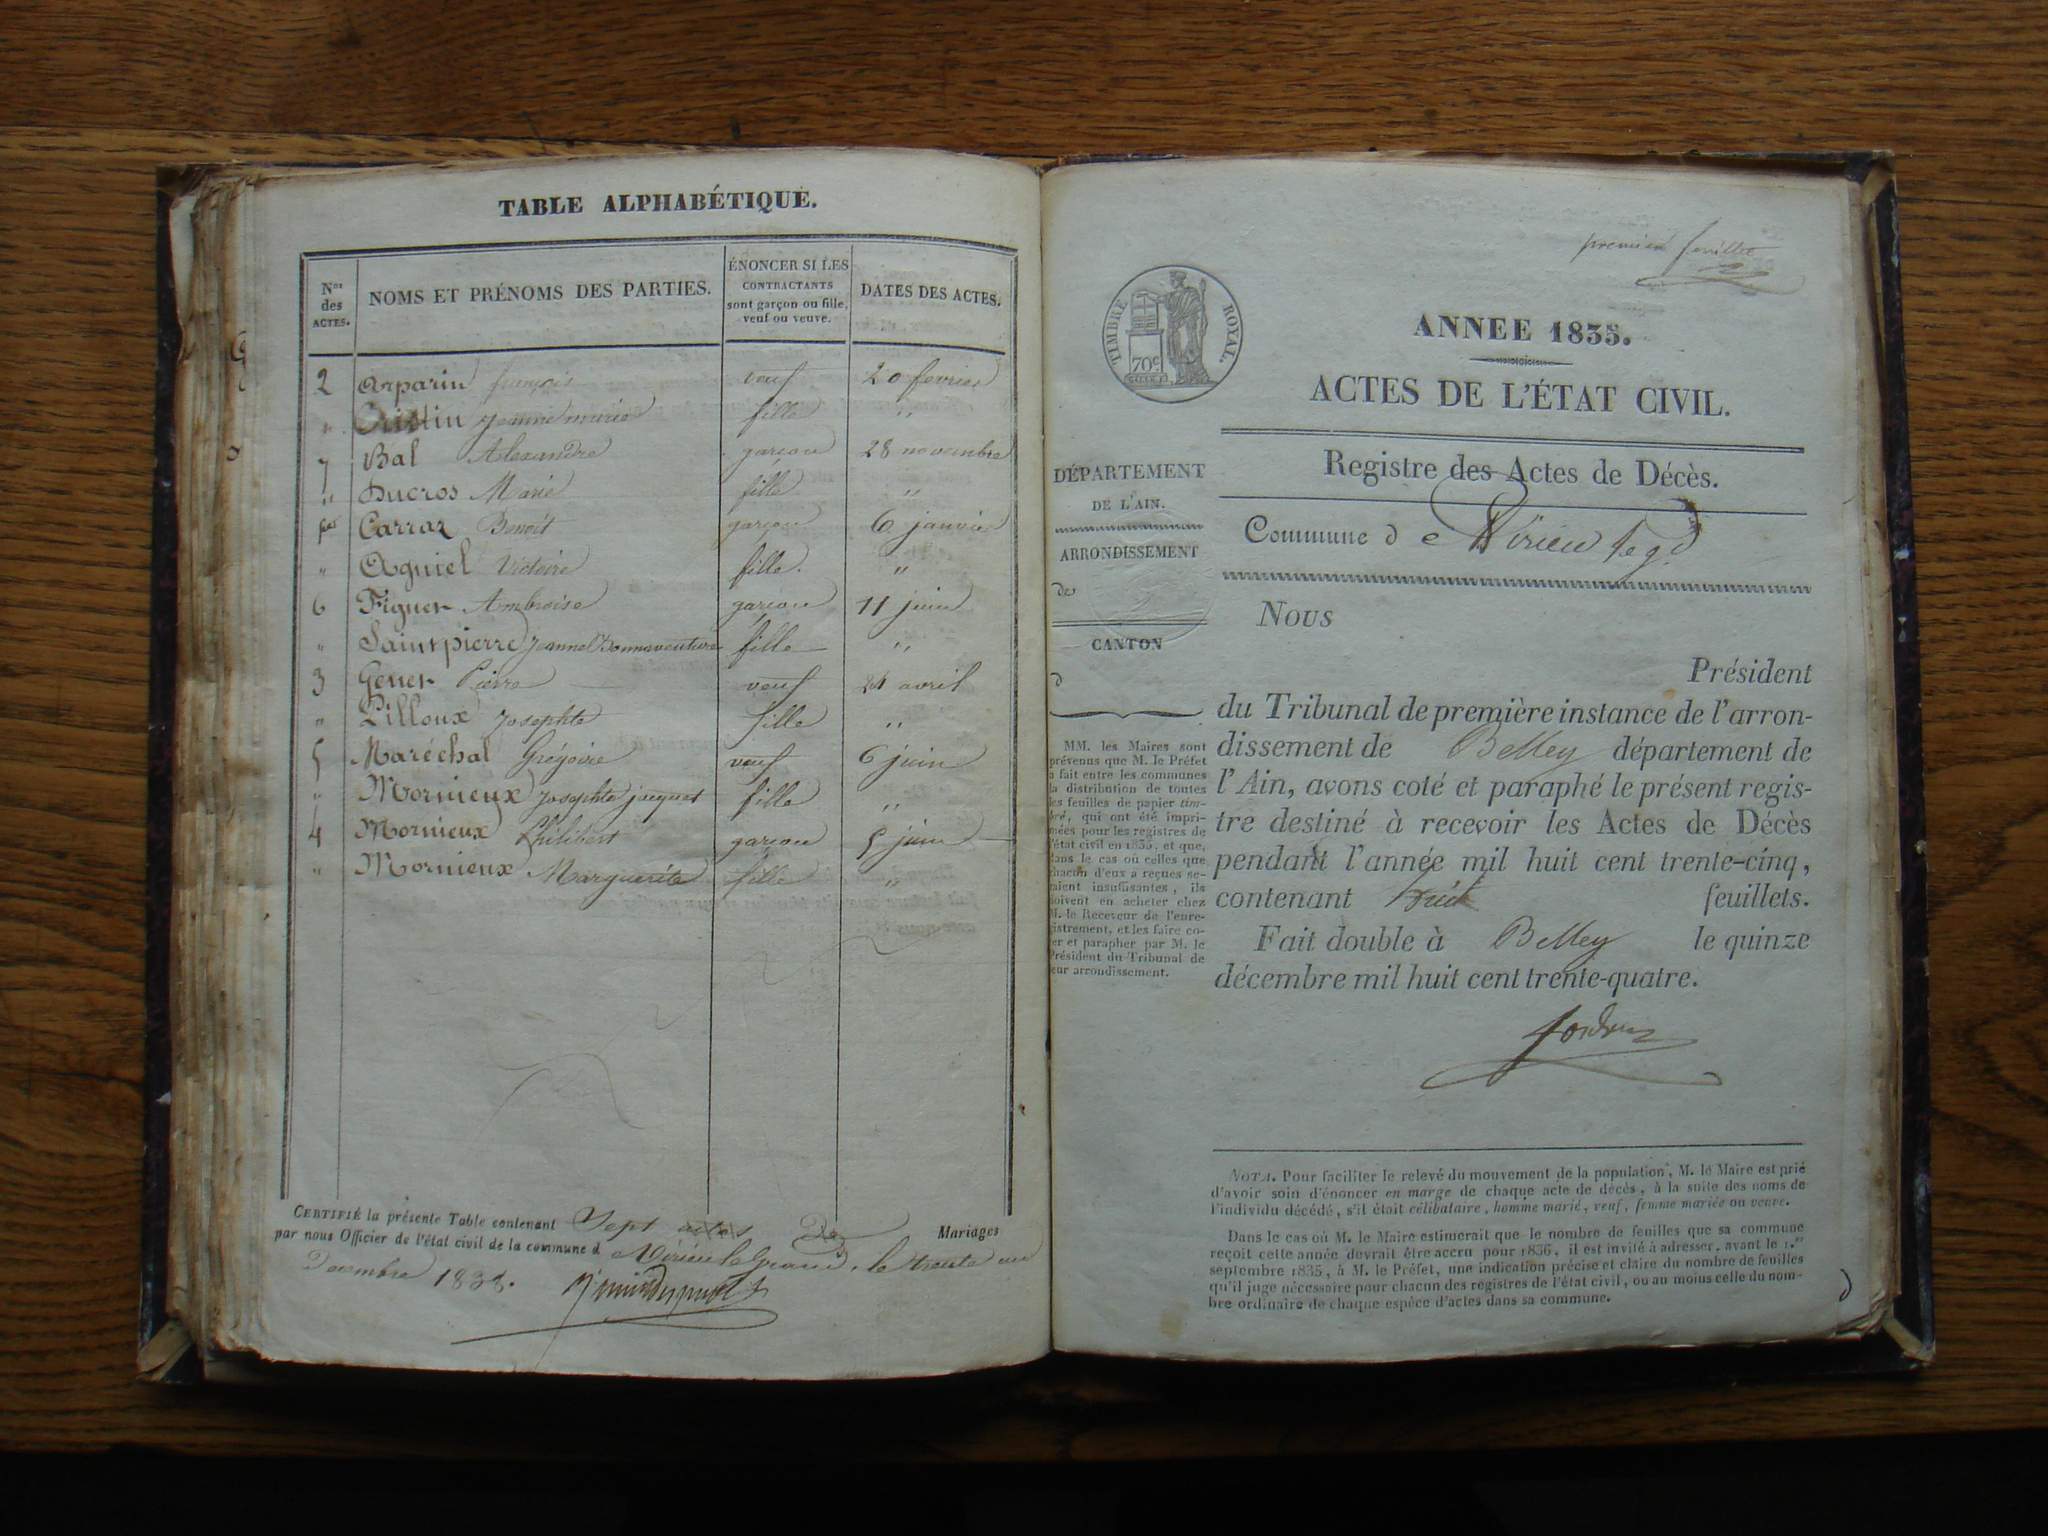 TABLE ALPHABÉTIQUE.
Nos des ACTES.
NOMS ET PRÉNOMS DES PARTIES.
ÉNONCER SI LES CONTRACTANTS sont garçon ou fille, veuf ou veuve.
DATES DES ACTES.
2 Arparin françois veuf 20 fevrier
" Jeanne marie fille "
7 Bal Alexandre garçon 28 novembre
" Ducros Marie fille "
Carraz Benoit garçon 6 janvier
" Aguiel Victoire fille. "
6 Figuet Ambroise garçon 11 juin
" Saintpierre Jeanne Bonnaventure fille "
3 Genet Pierre veuf 21 avril
" Pilloux Josephte fille "
5 Maréchal Grégoire veuf 6 juin
" Mornieux Josephte jacquet fille "
4 Mornieux Philibert garçon 5 juin
" Mornieux Marguerite fille "
CERTIFIÉ la présente Table contenant Sept actes De Mariages
par nous Officier de l'état civil de la commune d Virieu le Grand, le trente un
Decembre 1835.
premier feuillet
TIMBRE ROYAL.
70c
ANNEE 1835.
ACTES DE L'ÉTAT CIVIL.
Registre des Actes de Décès.
Commune de Virieu le gd
DÉPARTEMENT
DE L'AIN.
ARRONDISSEMENT
de
CANTON
d
MM. les Maires sont
prévenus que M. le Préfet
a fait entre les communes
la distribution de toutes
les feuilles de papier tim-
bré, qui ont été impri-
mées pour les registres de
l'état civil en 1835, et que,
dans le cas où celles que
chacun d'eux a reçues se-
raient insuffisantes, ils
doivent en acheter chez
M. le Receveur de l'enre-
gistrement, et les faire co-
ter et parapher par M. le
Président du Tribunal de
leur arrondissement.
Nous
Président
du Tribunal de première instance de l'arron-
dissement de Belley département de
l'Ain, avons coté et paraphé le présent regis-
tre destiné à recevoir les Actes de Décès
pendant l'année mil huit cent trente-cinq,
contenant huit feuillets.
Fait double à Belley le quinze
décembre mil huit cent trente-quatre.
NOTA. Pour faciliter le relevé du mouvement de la population, M. le Maire est prié
d'avoir soin d'énoncer en marge de chaque acte de décès, à la suite des noms de
l'individu décédé, s'il était célibataire, homme marié, veuf, femme mariée ou veuve.
Dans le cas où M. le Maire estimerait que le nombre de feuilles que sa commune
reçoit cette année devrait être accru pour 1836, il est invité à adresser, avant le 1.er
septembre 1835, à M. le Préfet, une indication précise et claire du nombre de feuilles
qu'il juge nécessaire pour chacun des registres de l'état civil, ou au moins celle du nom-
bre ordinaire de chaque espèce d'actes dans sa commune.